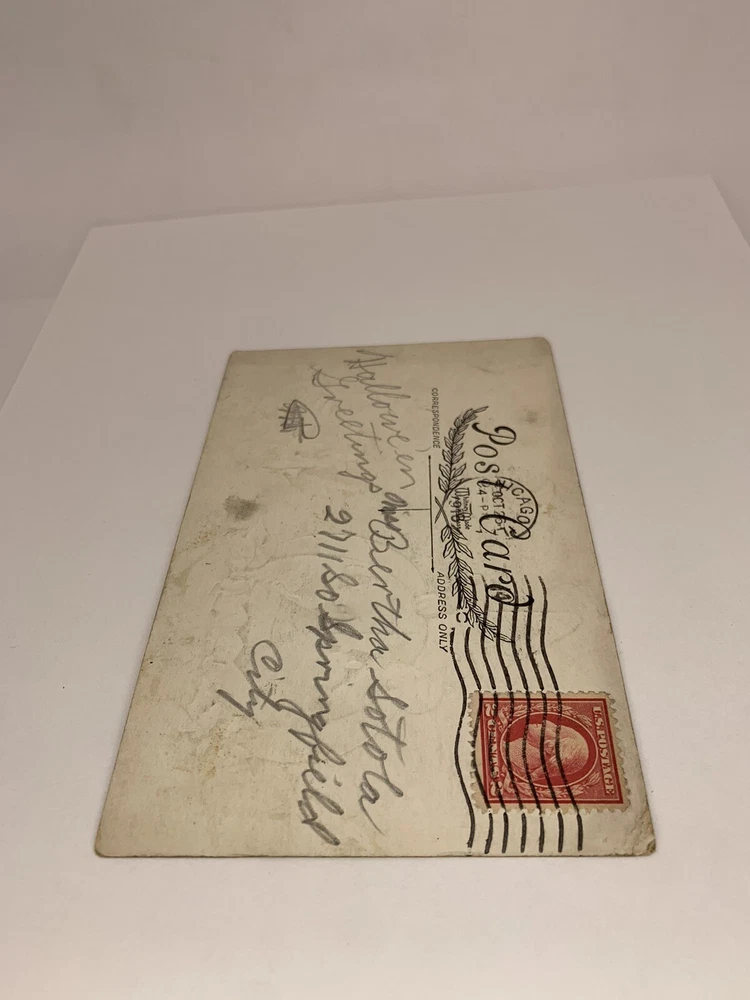 Post Card
CORRESPONDENCE
ADDRESS ONLY
CAGO
OCT 29
4-P
1918
Halloween
Greetings
Bertha Sotola
2711 So Springfield
City
U.S. POSTAGE
2 CENTS 2